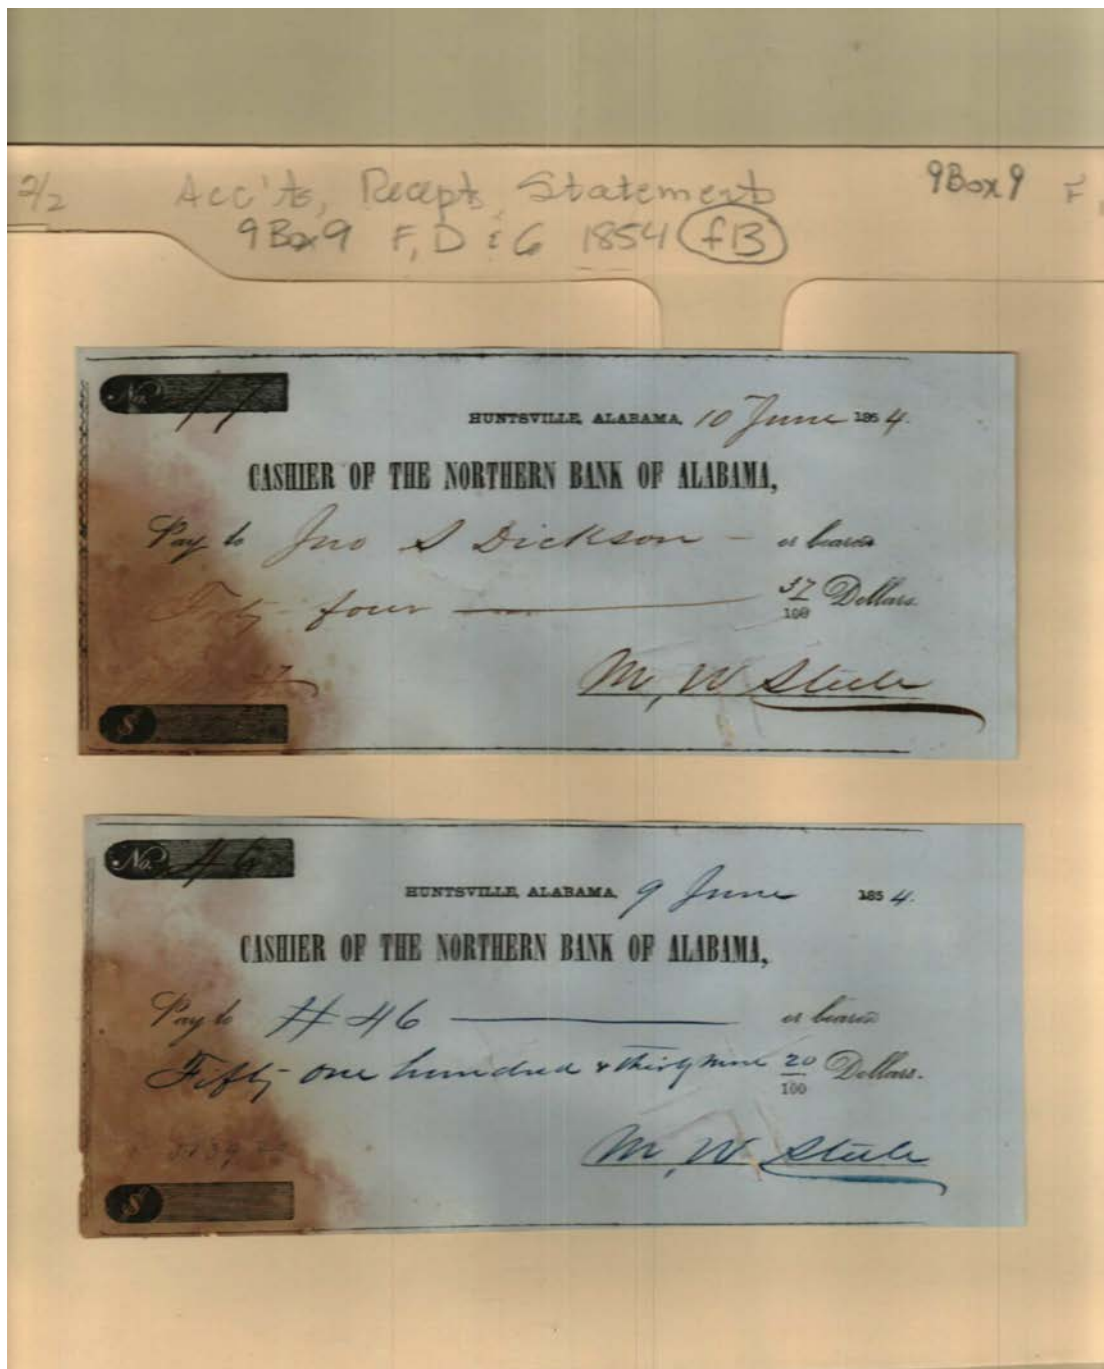 2/2 Acc'ts, Recepts, Statements 9Box9 F
9Box9 F, D & G 1854 f13
No.
HUNTSVILLE, ALABAMA, 10 June 1854.
CASHIER OF THE NORTHERN BANK OF ALABAMA,
Pay to Jno S Dickson or bearer
four 37/100 Dollars.
37
M, W Steele
$
No. 46
HUNTSVILLE, ALABAMA, 9 June 1854.
CASHIER OF THE NORTHERN BANK OF ALABAMA,
Pay to # 46 or bearer
Fifty one hundred & thirty nine 20/100 Dollars.
5139.20
M, W Steele
$